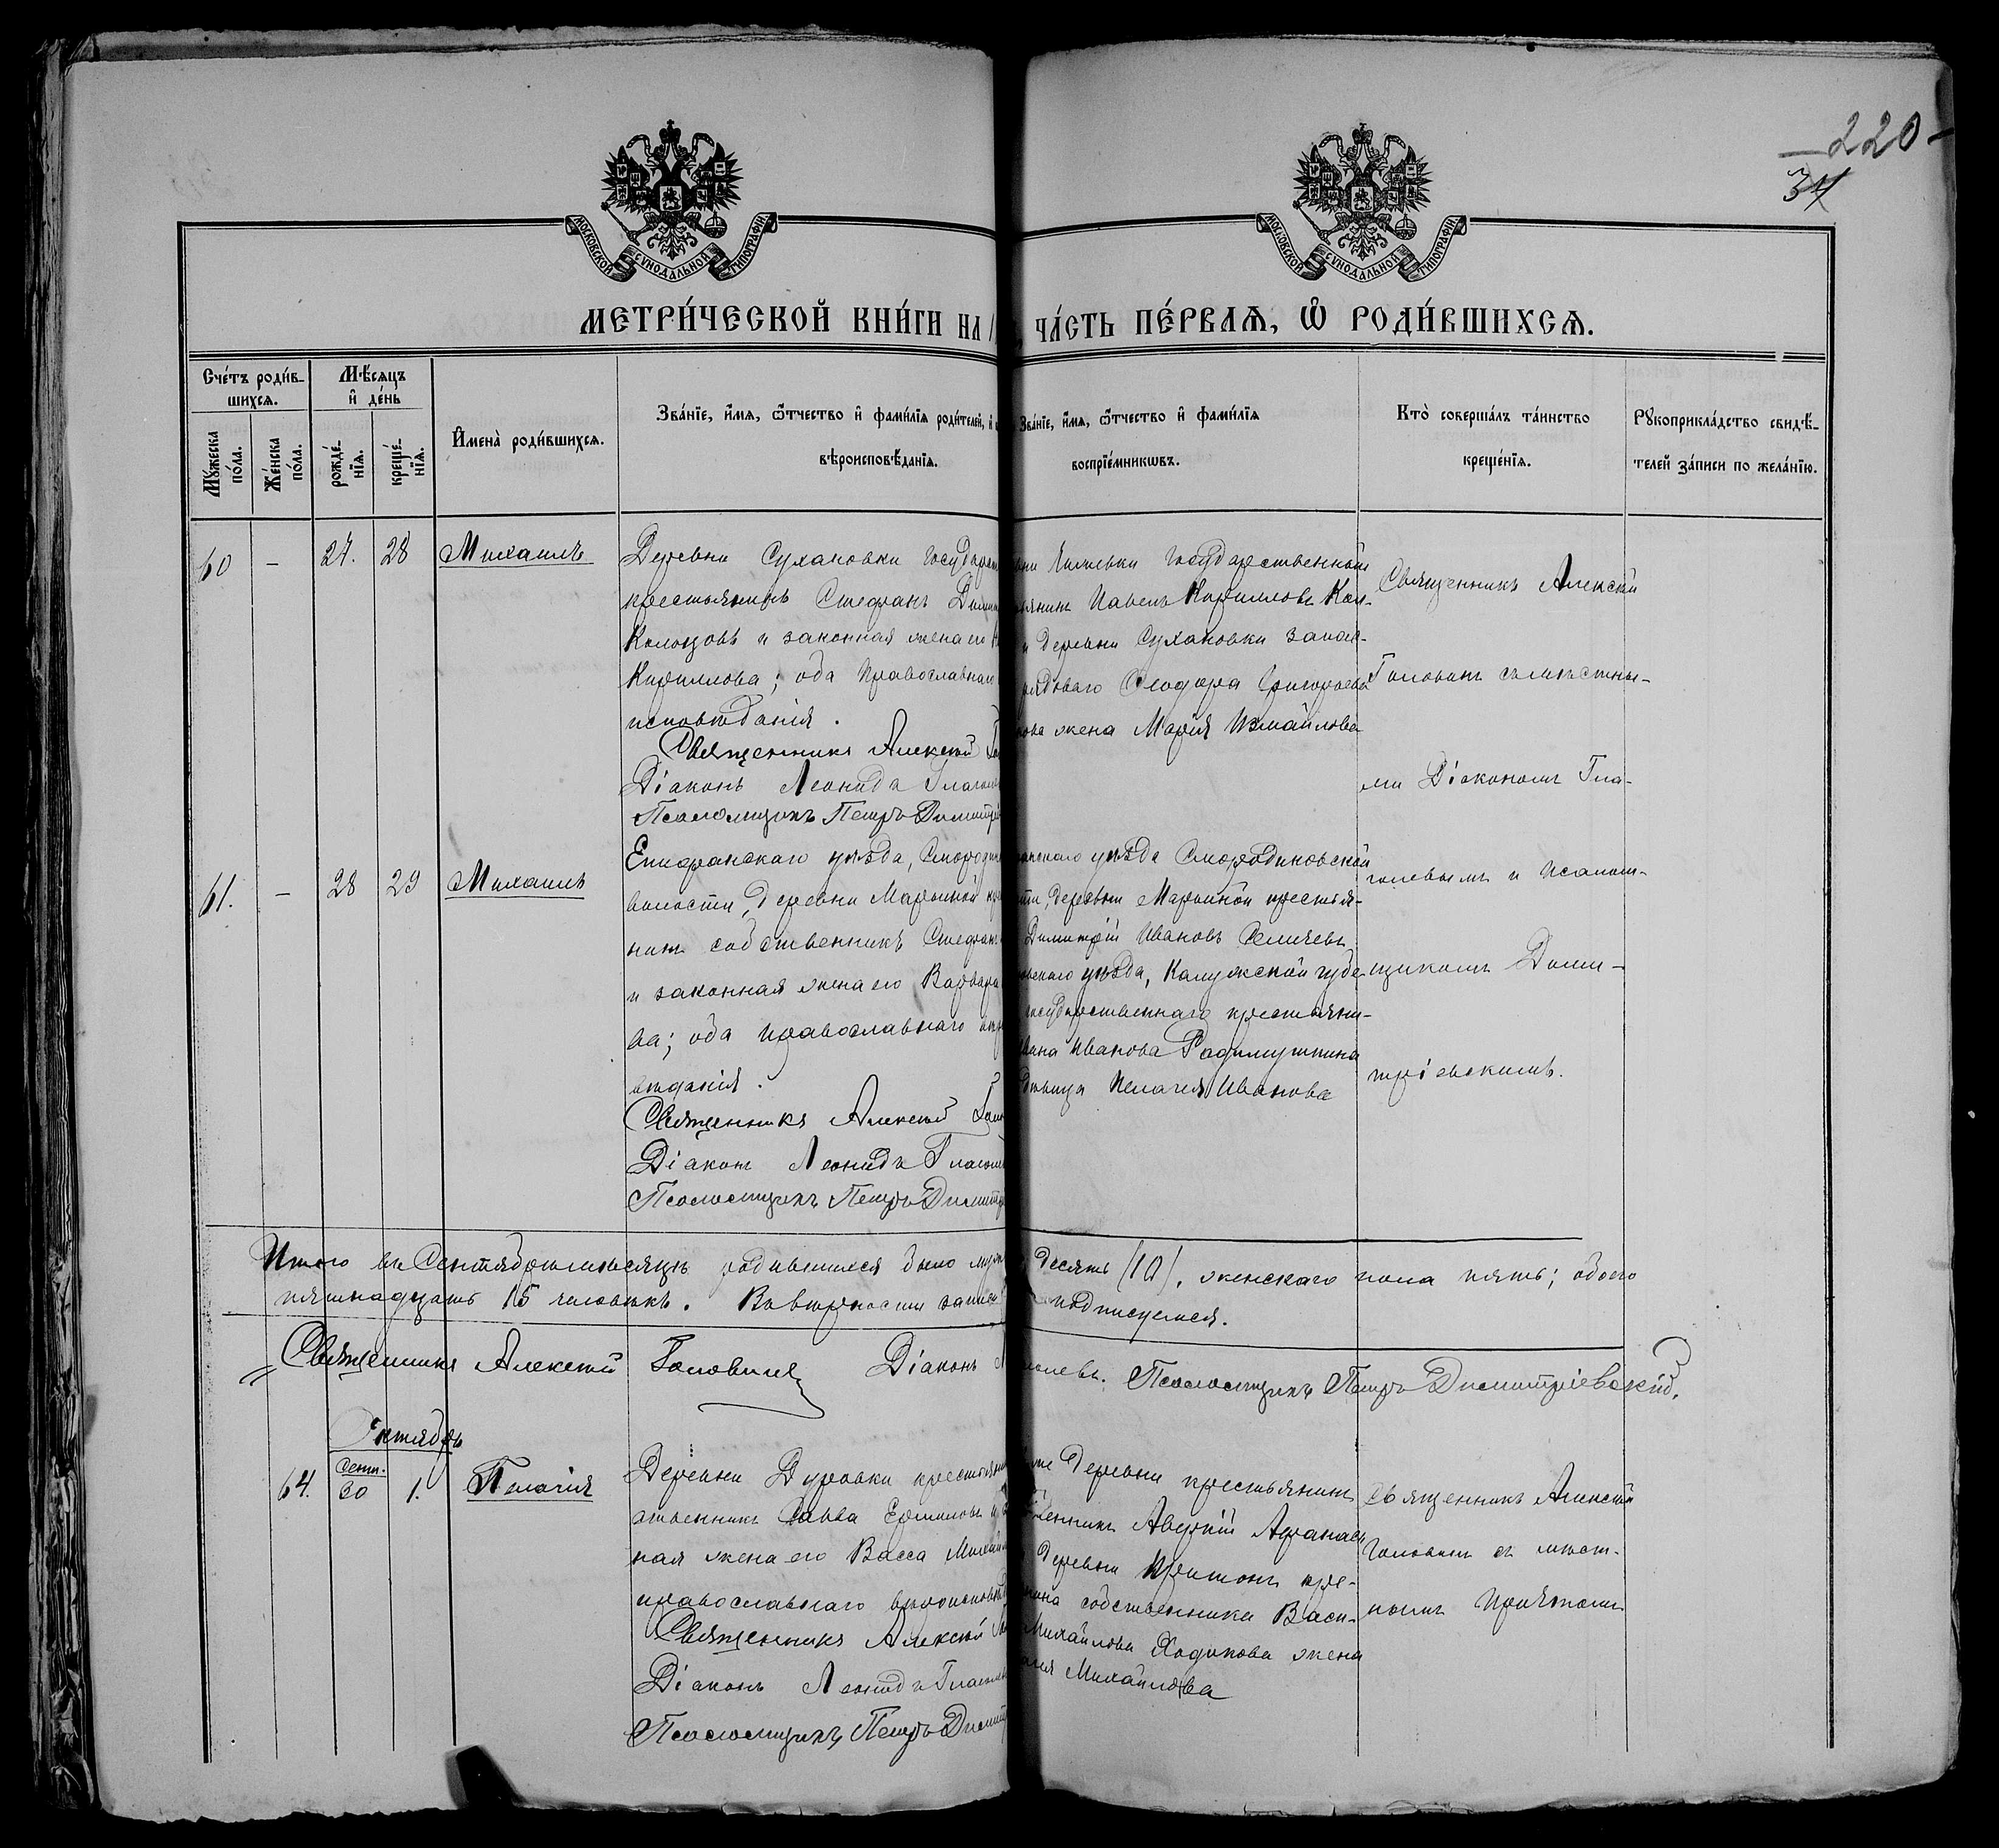 220
34
МОСКОВСКОЙ СѴНОДАЛЬНОЙ ТИПОГРАФІИ
МОСКОВСКОЙ СѴНОДАЛЬНОЙ ТИПОГРАФІИ
МЕТРИ́ЧЕСКОЙ КНИ́ГИ НА
ЧА́СТЬ ПЕ́РВАѦ, Ѡ҆ РОДИ́ВШИХСѦ.
Сче́тъ роди́в-
шихсѧ.
Мꙋ́жеска по́ла.
Же́нска по́ла.
Мѣ́сѧцъ
и҆ де́нь
рожде́-
нїѧ.
креще́-
нїѧ.
И҆мена̀ роди́вшихсѧ.
Зва́нїе, и҆́мѧ, ѻ҆́тчество и҆ фами́лїѧ роди́телей,
вѣроисповѣ́данїѧ.
Зва́нїе, и҆́мѧ, ѻ҆́тчество и҆ фами́лїѧ
воспрїе́мникѡвъ.
Кто̀ соверша́лъ та́инство
креще́нїѧ.
Рꙋкоприкла́дство свидѣ́-
телей за́писи по жела́нїю.
60 - 27. 28 Михаилъ
Деревни Сухановки Государст
крестьянинъ Стефанъ Дими
и законная жена его
Кириллова; оба православнаго
исповѣданія.
Священникъ Алексій Го
Діаконъ Леонидъ Глагол
Псаломщикъ Петръ Димитрі
Государственной
янинъ Павелъ Кирилловъ
и деревни Сухановки запас-
рядоваго Ѳеодора Григорьева
ова жена Марія Измайлова
Священникъ Алексій
Головинъ съ мѣстны-
ми Діакономъ Гла-
голевымъ и псалом-
щикомъ Дими-
тріевскимъ.
61. - 28 29 Михаилъ
Епифанскаго уѣзда, Смородин
волости, деревни Марьиной кре
нинъ собственникъ Стефанъ
и законная жена его Варвара
ва; оба православнаго
вѣданія.
Священникъ Алексій Голо
Діаконъ Леонидъ Глагол
Псаломщикъ Петръ Димитр
анскаго уѣзда Смородиновской
сти, деревни Марьиной крестья-
Димитрій Ивановъ
уѣзда, Калужской губе-
государственнаго крестьяни-
вана Иванова
дѣвица Пелагея Иванова
Итого въ Сентябрѣ мѣсяцѣ родившихся было муж
десять (10), женскаго пола пять; обоего
пятнадцать 15 человѣкъ. Въ вѣрности записи
подписуемся.
Священникъ Алексій Головинъ Діаконъ
голевъ. Псаломщикъ Петръ Димитріевскій.
Октябрь
64. Сент. 30 1. Пелагія
Деревни Дуровки крестьянин
ственникъ Савва Ермиловъ
ная жена его Васса Михай
православнаго вѣроисповѣд
Священникъ Алексій
Діаконъ Леонидъ Глагол
Псаломщикъ Петръ Димит
же деревни крестьянинъ
венникъ Аверкій Аѳанась
деревни кре-
нина собственника Васи-
Михайлова Ходикова жена
Михайлова
Священникъ Алексій
Головинъ съ мѣст-
нымъ причтомъ